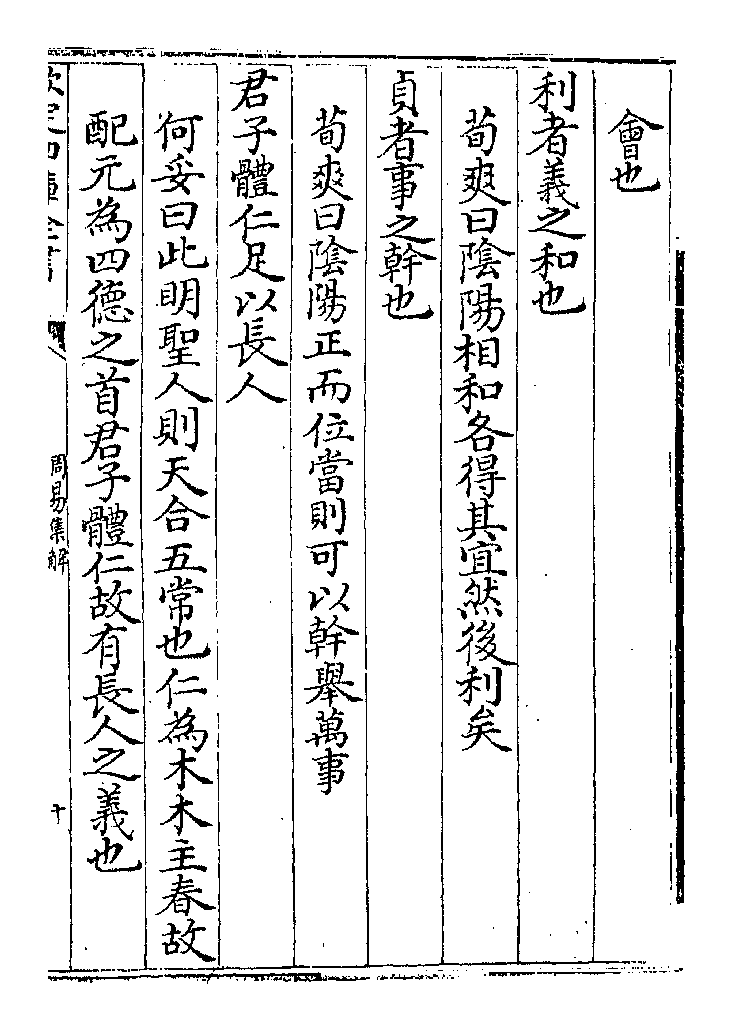 會也
利者義之和也
荀爽曰陰陽相和各得其宜然後利矣
貞者事之幹也
荀爽曰陰陽正而位當則可以幹舉萬事
君子體仁足以長人
何妥曰此明聖人則天合五常也仁為木木主春故
配元為四德之首君子體仁故有長人之義也
欽定四庫全書
周易集解
十